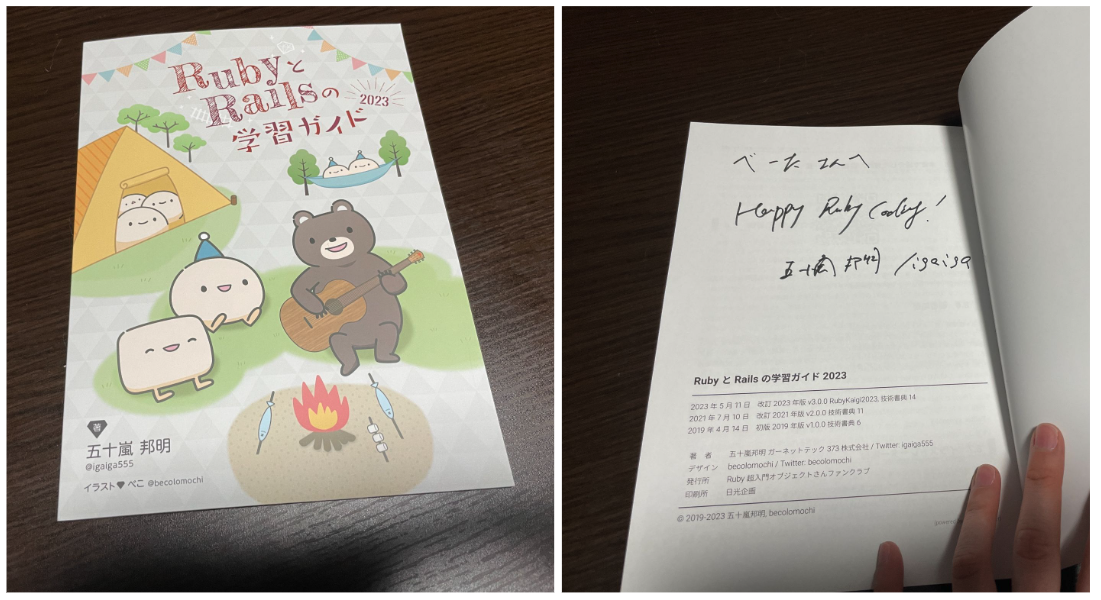 Rubyと
Railsの
2023
学習ガイド
著
五十嵐 邦明
@igaiga555
イラスト♥ べこ @becolomochi
べーたさんへ
Happy Ruby Coding!
五十嵐邦明 /igaiga
Ruby と Rails の学習ガイド 2023
2023 年 5 月 11 日 改訂 2023 年版 v3.0.0 RubyKaigi2023, 技術書典 14
2021 年 7 月 10 日 改訂 2021 年版 v2.0.0 技術書典 11
2019 年 4 月 14 日 初版 2019 年版 v1.0.0 技術書典 6
著 者 五十嵐邦明 ガーネットテック 373 株式会社 / Twitter: igaiga555
デザイン becolomochi / Twitter: becolomochi
発行所 Ruby 超入門オブジェクトさんファンクラブ
印刷所 日光企画
© 2019-2023 五十嵐邦明, becolomochi